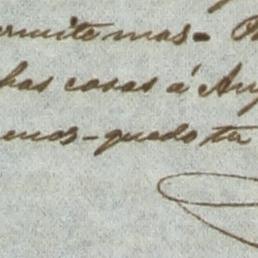 ermite mas-
has cosas á Au
enos-quedo tu